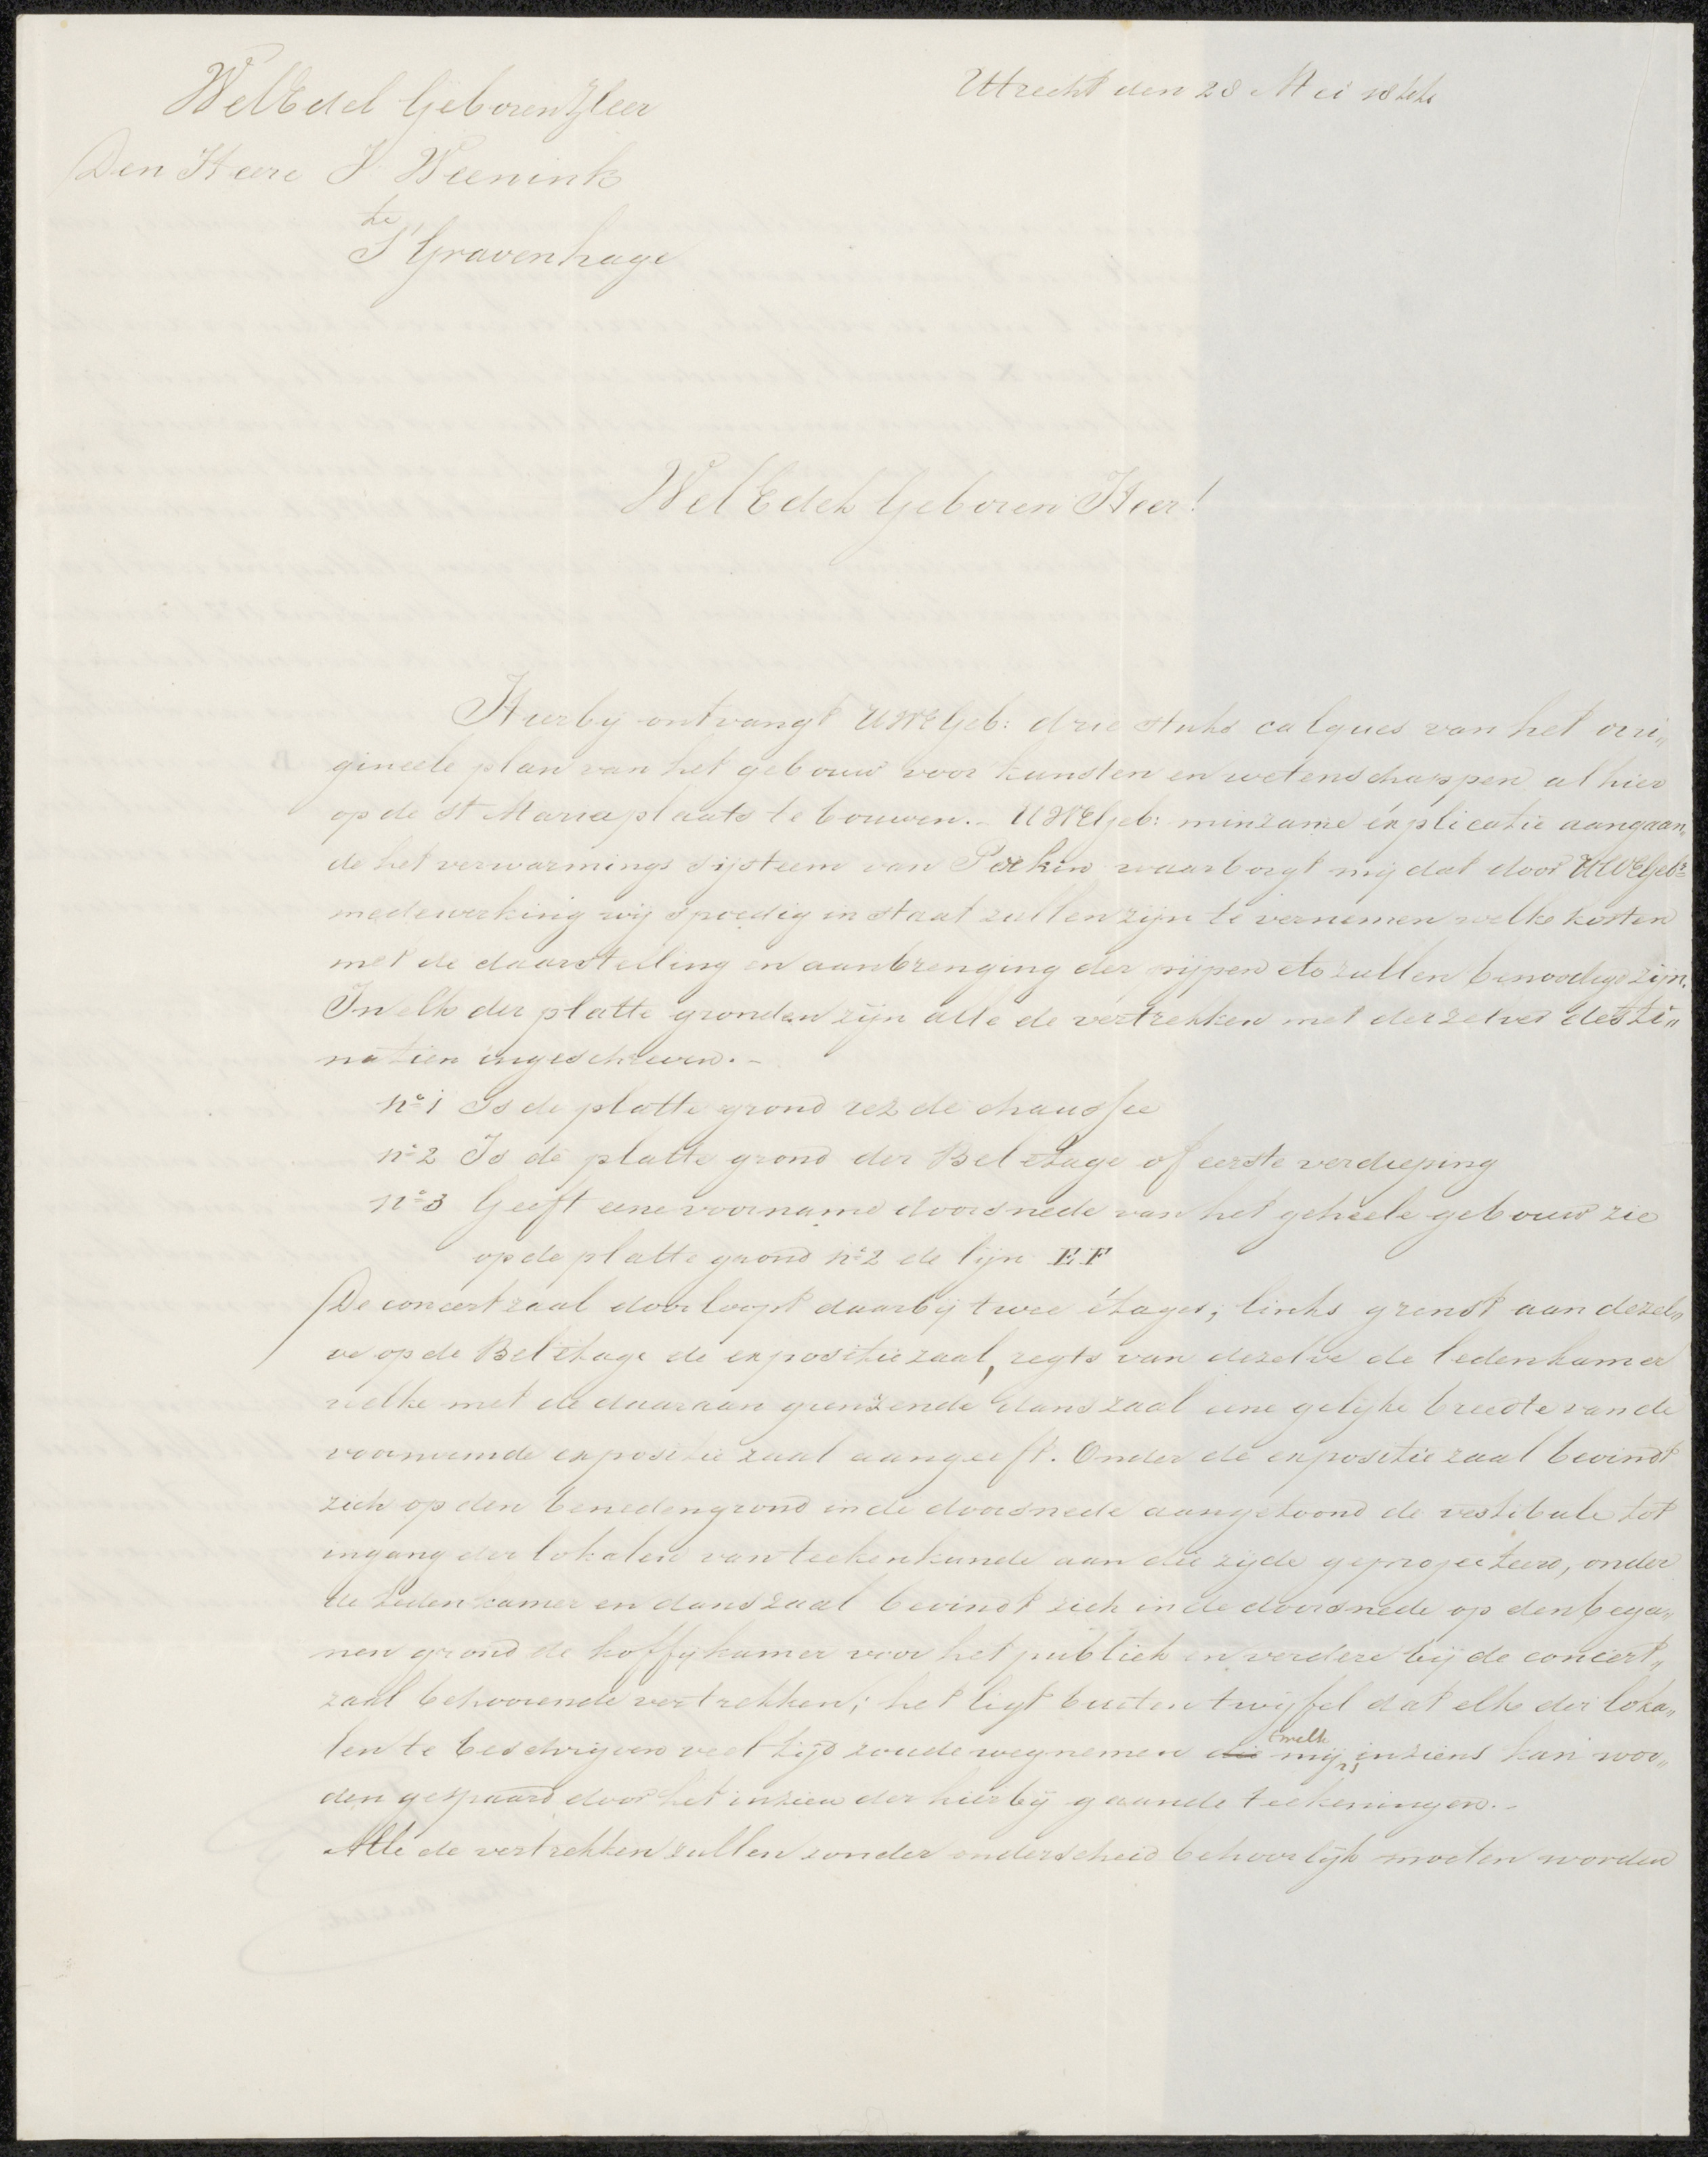 Utrecht den 28 Mei 1844
WelEdel Geboren Heer
Den Heere J Weenink
te
S'Gravenhage
WelEdel Geboren Heer!
Hierbij ontvangt UWEGeb: drie stuks calques van het ori„
gineele plan van het gebouw voor kunsten en wetenschappen alhier
op de St Mariaplaats te bouwen.- UWEGeb: minzame explicatie aangaan„
de het verwarmings systeem van Perkin waarborgt mij dat door UWEGebr
medewerking wij spoedig in staat zullen zijn te vernemen welke kosten
met de daarstelling en aanbrenging der pijpen etc zullen benoodigd zijn.
In elk der platte gronden zijn alle de vertrekken met derzelver desti„
natien ingeschreven.-
No 1 Is de platte grond rez de chaussee
No 2 Is de platte grond der Bel etage of eerste verdieping
No 3 Geeft eene voorname doorsnede van het geheele gebouw zie
op de platte grond No 2 de lijn EF
De concertzaal doorloopt daarbij twee étages; links grenst aan dezel„
ve op de Bel etage de expositiezaal, regts van dezelve de ledenkamer
welke met de daaraan grenzende danszaal eene gelijke breedte van de
voornoemde expositie zaal aangeeft. Onder de expositie zaal bevindt
zich op den benedengrond in de doorsnede aangetoond de vestibule tot
ingang der lokalen van teekenkunde aan die zijde geprojecteerd, onder
de Ledenkamer en danszaal bevindt zich in de doorsnede op den bega„
nen grond de koffijkamer voor het publiek en verdere bij de concert„
zaal behoorende vertrekken; het ligt buiten twijfel dat elk der loka„
len te beschrijven veel tijd zoude wegnemen die 'twelk mijns inziens kan wor„
den gespaard door het inzien der hierbij gaande teekeningen.-
Alle de vertrekken zullen zonder onderscheid behoorlijk moeten worden